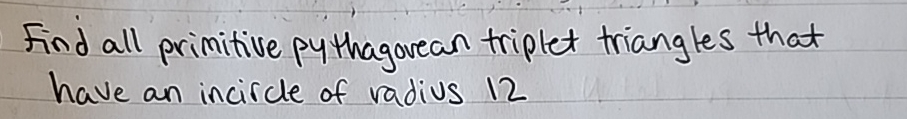 Find all primitive pythagorean triplet triangles that
have an incircle of radius 12